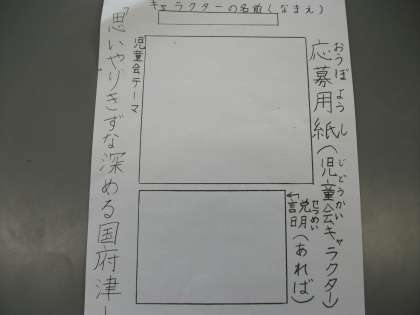 キャラクターの名前(なまえ)
応募用紙(児童会キャラクター)
おうぼようし
じどうかい
↰説明(あれば)
せつめい
児童会テーマ
『思いやりきずな深める国府津』